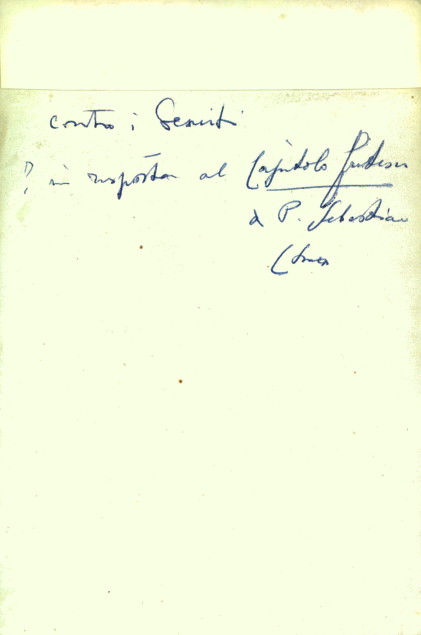 contro i Gesuiti
? in risposta al Capitolo fratesco
di P. Sebastiano